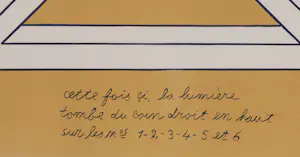 cette fois çi, la lumière
tombe du coin droit en haut
sur les nos 1-2-3-4-5 et 6